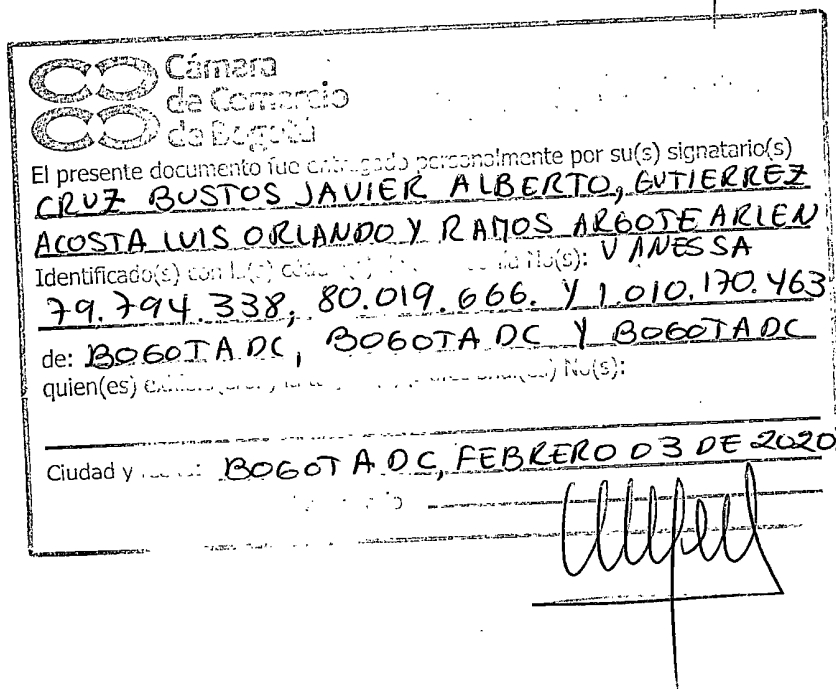 Cámara
de Comercio
de Bogotá
El presente documento fue entregado personalmente por su(s) signatario(s)
CRUZ BUSTOS JAVIER ALBERTO, GUTIERREZ
ACOSTA LUIS ORLANDO Y RAMOS ARGOTE ARLEN
Identificado(s) con No(s): VANESSA
79.794.338, 80.019.666. Y 1.010.170.463
de: BOGOTA DC, BOGOTA DC Y BOGOTA DC
quien(es) No(s):
Ciudad y : BOGOTA DC, FEBRERO 03 DE 2020